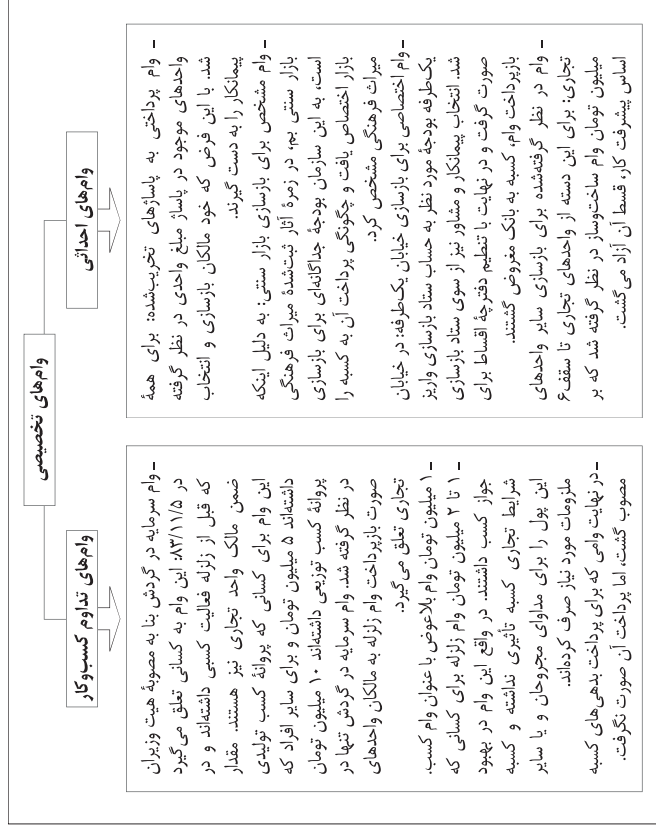 وام‌های تخصیصی
وام‌های احداثی
– وام پرداختی به پاساژهای تخریب‌شده: برای همهٔ
واحدهای موجود در پاساژ مبلغ واحدی در نظر گرفته
شد. با این فرض که خود مالکان بازسازی و انتخاب
پیمانکار را به دست گیرند.
– وام مشخص برای بازسازی بازار سنتی: به دلیل اینکه
بازار سنتی بم، در زمرهٔ آثار ثبت‌شدهٔ میراث فرهنگی
است، به این سازمان بودجهٔ جداگانه‌ای برای بازسازی
بازار اختصاص یافت و چگونگی پرداخت آن به کسبه را
میراث فرهنگی مشخص کرد.
– وام اختصاصی برای بازسازی خیابان یک‌طرفه: در خیابان
یک‌طرفه بودجهٔ مورد نظر به حساب ستاد بازسازی واریز
شد. انتخاب پیمانکار و مشاور نیز از سوی ستاد بازسازی
صورت گرفت و در نهایت با تنظیم دفترچهٔ اقساط برای
بازپرداخت وام، کسبه به بانک مقروض گشتند.
– وام در نظر گرفته‌شده برای بازسازی سایر واحدهای
تجاری: برای این دسته از واحدهای تجاری تا سقف ۶
میلیون تومان وام ساخت‌وساز در نظر گرفته شد که بر
اساس پیشرفت کار، قسط آن آزاد می‌گشت.
وام‌های تداوم کسب‌وکار
– وام سرمایه در گردش بنا به مصوبهٔ هیت وزیران
در ۸۳/۱۱/۵: این وام به کسانی تعلق می‌گیرد
که قبل از زلزله فعالیت کسبی داشته‌اند و در
ضمن مالک واحد تجاری نیز هستند. مقدار
این وام برای کسانی که پروانهٔ کسب تولیدی
داشته‌اند ۵ میلیون تومان و برای سایر افراد که
پروانهٔ کسب توزیعی داشته‌اند ۱۰ میلیون تومان
در نظر گرفته شد. وام سرمایه در گردش تنها در
صورت بازپرداخت وام زلزله به مالکان واحدهای
تجاری تعلق می‌گیرد.
– ۱ میلیون تومان وام بلاعوض با عنوان وام کسب.
– ۱ تا ۲ میلیون تومان وام زلزله برای کسانی که
جواز کسب داشتند. در واقع این وام در بهبود
شرایط تجاری کسبه تأثیری نداشته و کسبه
این پول را برای مداوای مجروحان و یا سایر
ملزومات مورد نیاز صرف کرده‌اند.
– در نهایت وامی که برای پرداخت بدهی‌های کسبه
مصوب گشت، اما پرداخت آن صورت نگرفت.